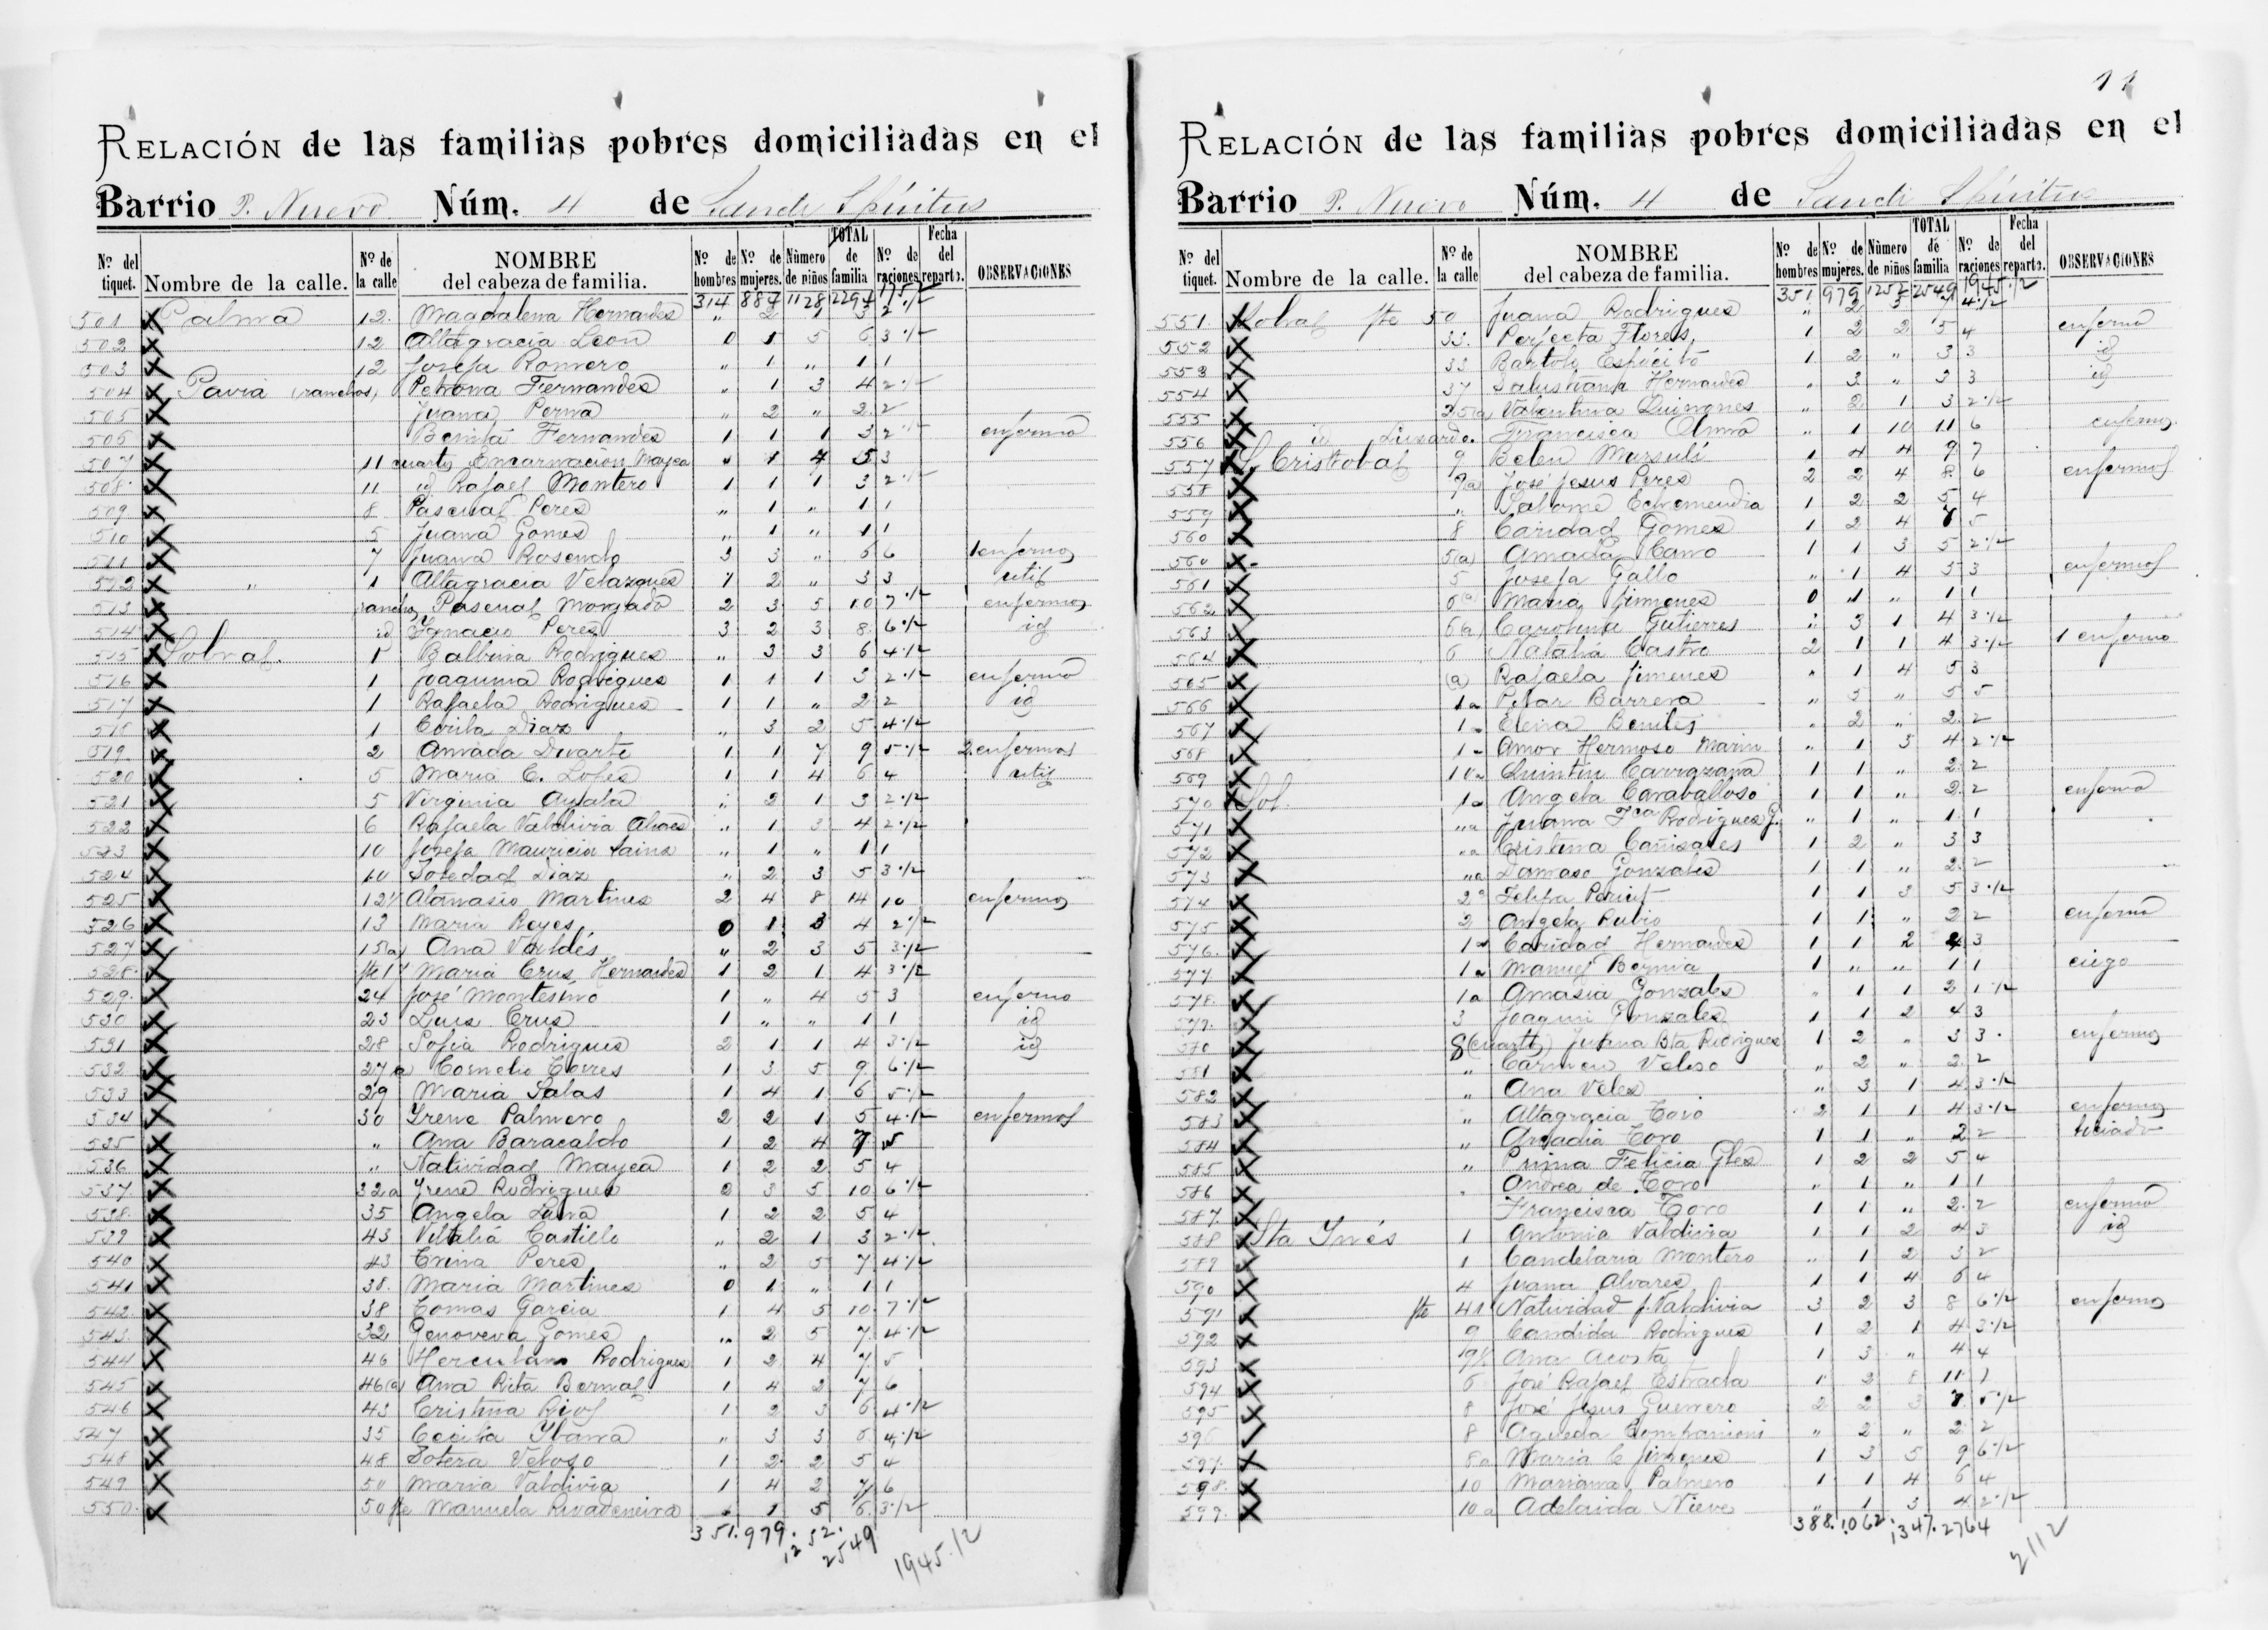 RELACIÓN de las familias pobres domiciliadas en el
Barrio P. Nuevo Núm. 4 de Sancti Spíritus
Nº del tiquet. Nombre de la calle. Nº de la calle NOMBRE del cabeza de familia. Nº de hombres Nº de mujeres. Número de niños TOTAL de familia Nº de raciones Fecha del reparto. OBSERVACIONES
314 884 1128 2294
501 Palma 12. Magdalena Hernandes " 2 1 3 2
502 12 Altagracia Leon 0 1 5 6 3·1/2
503 12 Josefa Romero " 1 " 1 1
504 Pavia (ranchos) Petrona Fernandes " 1 3 4 2·1/2
505 Juana Perna " 2 " 2 2
506 Benita Fernandes 1 1 1 3 2·1/2 enferma
507 11 cuarto Encarnacion Mayea " 1 4 5 3
508 11 id Rafael Montero 1 1 1 3 2·1/2
509 8 Pascual Peres " 1 " 1 1
510 5 Juana Gomes " 1 " 1 1
511 7 Juana Rosendo 3 3 " 6 6 1 enfermo
512 " 1 Altagracia Velazques 1 2 " 3 3 util
513 rancho Pascual Morgado 2 3 5 10 7·1/2 enfermo
514 id Ignacio Peres 3 2 3 8 6·1/2 id
515 Sobral. 1 Balbina Rodrigues " 3 3 6 4·1/2
516 1 Joaquina Rodrigues 1 1 1 3 2·1/2 enfermo
517 1 Rafaela Rodrigues 1 1 " 2 2 id
518 1 Corila Diaz " 3 2 5 4·1/2
519 2 Amada Duarte 1 1 7 9 5·1/2 2 enfermos
520 5 Maria C. Lopes 1 1 4 6 4 util
521 5 Virginia Ayala " 2 1 3 2·1/2
522 6 Rafaela Valdivia Alvares " 1 3 4 2·1/2
523 10 Josefa Mauricia Sainz " 1 " 1 1
524 10 Soledad Diaz " 2 3 5 3·1/2
525 Atanasio Martines 2 4 8 14 10 enfermo
526 13 Maria Reyes 0 1 3 4 2·1/2
527 15(a) Ana Valdés " 2 3 5 3·1/2
528 Maria Crus Hernandes 1 2 1 4 3·1/2
529 24 José Montesino 1 " 4 5 3 enfermo
530 23 Luis Crus 1 " " 1 1 id
531 28 Sofia Rodrigues 2 1 1 4 3·1/2 id
532 27 a Cornelio Torres 1 3 5 9 6·1/2
533 29 Maria Salas 1 4 1 6 5·1/2
534 30 Yrene Palmero 2 2 1 5 4·1/2 enfermos
535 " Ana Baracaldo 1 2 4 7 5
536 " Natividad Mayea 1 2 2 5 4
537 32 a Yrene Rodrigues 2 3 5 10 6·1/2
538 35 Angela Luna 1 2 2 5 4
539 43 Vitalia Castillo " 2 1 3 2·1/2
540 43 Erina Peres " 2 5 7 4·1/2
541 38. Maria Martines 0 1 " 1 1
542 38 Tomas Garcia 1 4 5 10 7·1/2
543 32 Genoveva Gomes " 2 5 7 4·1/2
544 46 Herculano Rodrigues 1 2 4 7 5
545 46(a) Ana Rita Bernal 1 4 2 7 6
546 43 Cristina Rios 1 2 3 6 4·1/2
547 35 Cecilia Ybarra " 3 3 6 4·1/2
548 48 Sotera Veloso 1 2 2 5 4
549 50 Maria Valdivia 1 4 2 7 6
550 50 fte Manuela Rivadeneira " 1 5 6 3·1/2
351. 979. 1252. 2549 1945·1/2
11
RELACIÓN de las familias pobres domiciliadas en el
Barrio P. Nuevo Núm. 4 de Sancti Spíritus
Nº del tiquet. Nombre de la calle. Nº de la calle NOMBRE del cabeza de familia. Nº de hombres Nº de mujeres. Número de niños TOTAL de familia Nº de raciones Fecha del reparto. OBSERVACIONES
351 979 1252 2549 1945·1/2
551 Sobral fte 50 Juana Rodrigues " 2 4·1/2
552 33. Perfecta Flores 1 2 2 5 4 enferma
553 33 Bartolo Espécito 1 2 " 3 3 id
554 37 Salustiana Hernandes " 3 " 3 3 id
555 35(a) Valentina Quinones " 2 1 3 2·1/2
556 id Francisca Olmo " 1 10 11 6 enfermo
557 S. Cristobal 9 Belen Marsulí 1 4 4 9 7
558 9(a) José Jesus Peres 2 2 4 8 6 enfermos
559 " Salome Echemendia 1 2 2 5 4
560 8 Caridad Gomes 1 2 4 7 5
560 5(a) Amada Cano 1 1 3 5 2·1/2
561 5 Josefa Gallo " 1 4 5 3 enfermos
562 6(a) Maria Jimenes 0 1 " 1 1
563 6(a) Carolina Gutierres " 3 1 4 3·1/2
564 6 Natalia Castro 2 1 1 4 3·1/2 1 enfermo
565 (a) Rafaela Jimenes " 1 4 5 3
566 1a Pilar Barrera " 5 " 5 5
567 1a Elena Benites " 2 " 2 2
568 1a Amor Hermoso Marin " 1 3 4 2·1/2
569 10a Quintin Carrazana 1 1 " 2 2
570 Sol. 1a Angela Caraballoso 1 1 " 2 2 enferma
571 "a Juana Fca Rodrigues G. " 1 " 1 1
572 "a Cristina Cañisares 1 2 " 3 3
573 "a Damaso Gonzales 1 1 " 2 2
574 2a Felipa Periut 1 1 3 5 3·1/2
575 2 Angela Rubio 1 1 " 2 2 enferma
576 1a Caridad Hernandes 1 1 2 4 3
577 1a Manuel Bernia 1 " " 1 1 ciego
578 1a Amasia Gonzales " 1 1 2 1·1/2
579 3 Joaquin Gonzales 1 1 2 4 3
580 8 (cuartt) Juana Bta Rodrigues 1 2 " 3 3 enfermo
581 " Carmen Veloso " 2 " 2 2
582 " Ana Veles " 3 1 4 3·1/2
583 " Altagracia Toro 2 1 1 4 3·1/2 enfermo
584 " Arcadia Toro 1 1 " 2 2
585 " Prima Felicia Gles 1 2 2 5 4
586 " Andrea de Toro " 1 " 1 1
587 Francisca Toro 1 1 " 2 2 enferma
588 Sta Ynés 1 Antonia Valdivia 1 1 2 4 3 id
589 1 Candelaria Montero " 1 2 3 2
590 4 Juana Alvares 1 1 4 6 4
591 fte 41 Natividad J. Valdivia 3 2 3 8 6·1/2 enfermo
592 9 Candida Rodrigues 1 2 1 4 3·1/2
593 Ana Acosta 1 3 " 4 4
594 6 José Rafael Estrada 1 2 8 11
595 8 José Jesus Guerrero 2 2 3 7 5·1/2
596 8 Agueda Companioni " 2 " 2 2
597 8a Maria C Jimenes 1 3 5 9 6·1/2
598 10 Mariana Palmero 1 1 4 6 4
599 10 a Adelaida Nieve " 1 3 4 2·1/2
388. 1062. 1347. 2764 2112